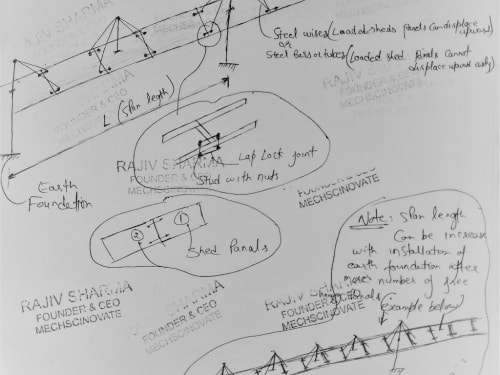 RAJIV SHARMA
FOUNDER & CEO
MECHSCINOVATE
Steel wires (Loaded sheds Panals can displace upward)
or
Steel Bars or tubes (Loaded shed Panals cannot displace upward easily)
RAJIV SHARMA
FOUNDER & CEO
MECHSCINOVATE
L (Span length)
RAJIV SHARMA
FOUNDER & CEO
MECHSCINOVATE
Lap Lock joint
Stud with nuts
RAJIV SHARMA
FOUNDER & CEO
MECHSCINOVATE
Earth
Foundation
FOUNDER & CEO
MECHSCINOVATE
② ①
Shed Panals
Note: Span length
Can be increase
with installation of
earth foundation after
more number of free
Panals
(example below)
RAJIV SHARMA
FOUNDER & CEO
MECHSCINOVATE
RAJIV SHARMA
FOUNDER & CEO
MECHSCINOVATE
RAJIV SHARMA
FOUNDER & CEO
MECHSCINOVATE